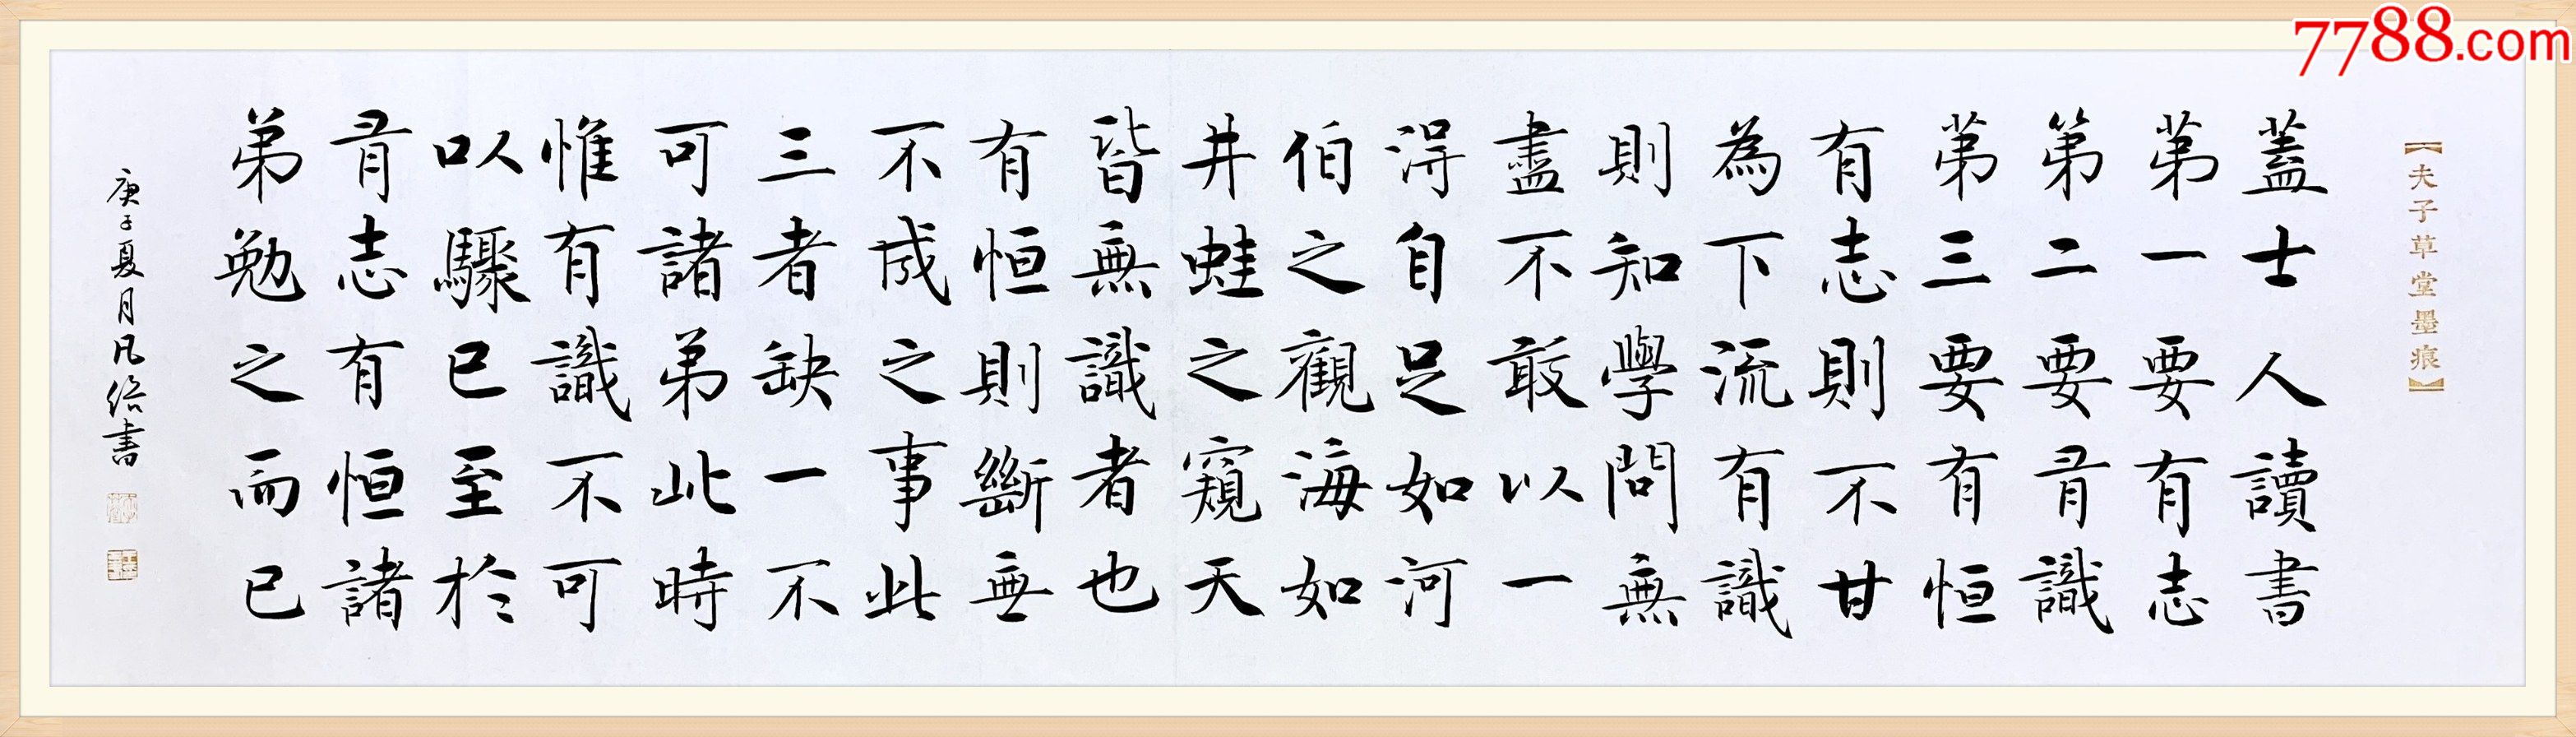 7788.com
【夫子草堂墨痕】
蓋士人讀書
苐一要有志
第二要有識
苐三要有恒
有志則不甘
為下流有識
則知學問無
盡不敢以一
得自足如河
伯之觀海如
井蛙之窺天
皆無識者也
有恒則斷無
不成之事此
三者缺一不
可諸弟此時
惟有識不可
以驟已至於
有志有恒諸
弟勉之而已
庚子夏月凡書